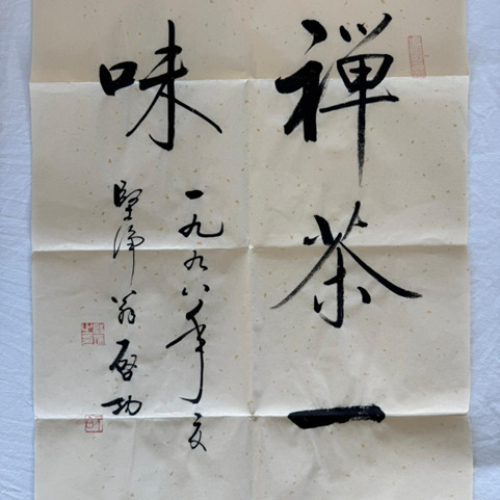 禅茶一
味
一九九八年夏
坚净翁启功